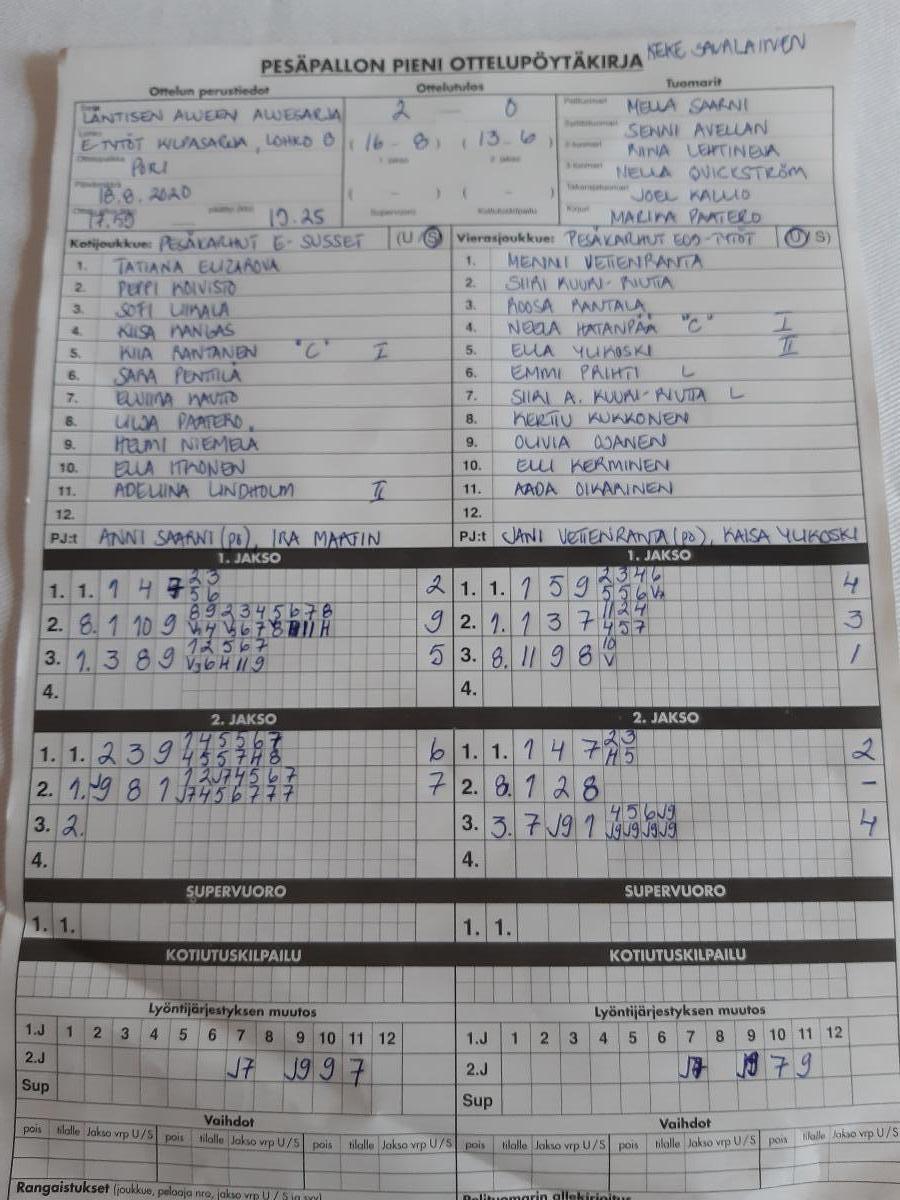 KEKE SAVALAINEN
PESÄPALLON PIENI OTTELUPÖYTÄKIRJA
Ottelun perustiedot Ottelutulos Tuomarit
LÄNTISEN ALUEEN ALUESARJA 2 — 0 MELLA SAARNI
E-TYTÖT KILPASARJA, LOHKO B (16 - 8) (13 - 6) SENNI AVELLAN
1. jakso 2. jakso
RIINA LEHTINEVA
PORI NELLA QVICKSTRÖM
18.8.2020 ( - ) ( - ) JOEL KALLIO
17.59 19.25 Supervuoro Kotiutuskilpailu MARIKA PAATERO
Kotijoukkue: PESÄKARHUT E-SUSSET (U / S) Vierasjoukkue: PESÄKARHUT E09-TYTÖT (U / S)
1. TATIANA ELIZAROVA 1. MENNI VETTENRANTA
2. PEPPI KOIVISTO 2. SIIRI KUURI-RIUTTA
3. SOFI LIIKALA 3. ROOSA RANTALA
4. KIISA KANGAS 4. NEEA HATANPÄÄ "C" I
5. KIIA RANTANEN "C" I 5. ELLA YLIKOSKI II
6. SARA PENTTILÄ 6. EMMI PRIHTI L
7. ELVIIRA KAUTTO 7. SIIRI A. KUURI-RIUTTA L
8. LILJA PAATERO 8. KERTTU KUKKONEN
9. HELMI NIEMELÄ 9. OLIVIA OJANEN
10. ELLA ITKONEN 10. ELLI KERMINEN
11. ADELIINA LINDHOLM II 11. AADA OIKARINEN
12. 12.
PJ:t ANNI SAARNI (pj), IRA MAATIN PJ:t JANI VETTENRANTA (pj), KAISA YLIKOSKI
1. JAKSO 1. JAKSO
1. 1. 1 4 7 2 3 2 1. 1. 1 5 9 2 3 4 6 4
5 6
2. 8. 1 10 9 8 9 2 3 4 5 6 7 8 9 2. 1. 1 3 7 11 2 4 3
4 5 7
3. 1. 3 8 9 1 2 5 6 7 5 3. 8. 11 9 8 10 1
V
4. 4.
2. JAKSO 2. JAKSO
1. 1. 2 3 9 1 4 5 5 6 7 6 1. 1. 1 4 7 2 3 2
4 5 5 7 H 8 H 5
2. 1. J9 8 1 1 2 J7 4 5 6 7 7 2. 8. 1 2 8 -
J7 4 5 6 7 7 7
3. 2. 3. 3. 7 J9 1 4 5 6 J9 4
J9 J9 J9 J9
4. 4.
SUPERVUORO SUPERVUORO
1. 1. 1. 1.
KOTIUTUSKILPAILU KOTIUTUSKILPAILU
Lyöntijärjestyksen muutos Lyöntijärjestyksen muutos
1.J 1 2 3 4 5 6 7 8 9 10 11 12 1.J 1 2 3 4 5 6 7 8 9 10 11 12
2.J J7 J9 9 7 2.J J7 J9 7 9
Sup Sup
Vaihdot Vaihdot
pois tilalle Jakso vrp U/S pois tilalle Jakso vrp U/S pois tilalle Jakso vrp U/S pois tilalle Jakso vrp U/S pois tilalle Jakso vrp U/S pois tilalle Jakso vrp U/S
Rangaistukset (joukkue, pelaaja nro, jakso vrp U / S ja syy) Pelituomarin allekirjoitus